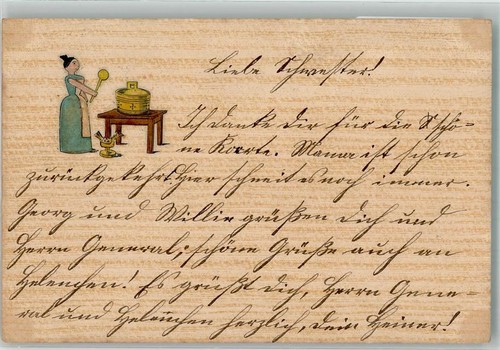 Liebe Schwester!
Ich danke Dir für die Schö-
ne Karte. Mama ist schon
zurückgekehrt. Hier schneit es noch immer.
Georg und Willie grüßen Dich und
Herrn General; schöne Grüße auch an
Helenchen! Es grüßt Dich, Herrn Gene-
ral und Helenchen herzlich, Dein Heiner!